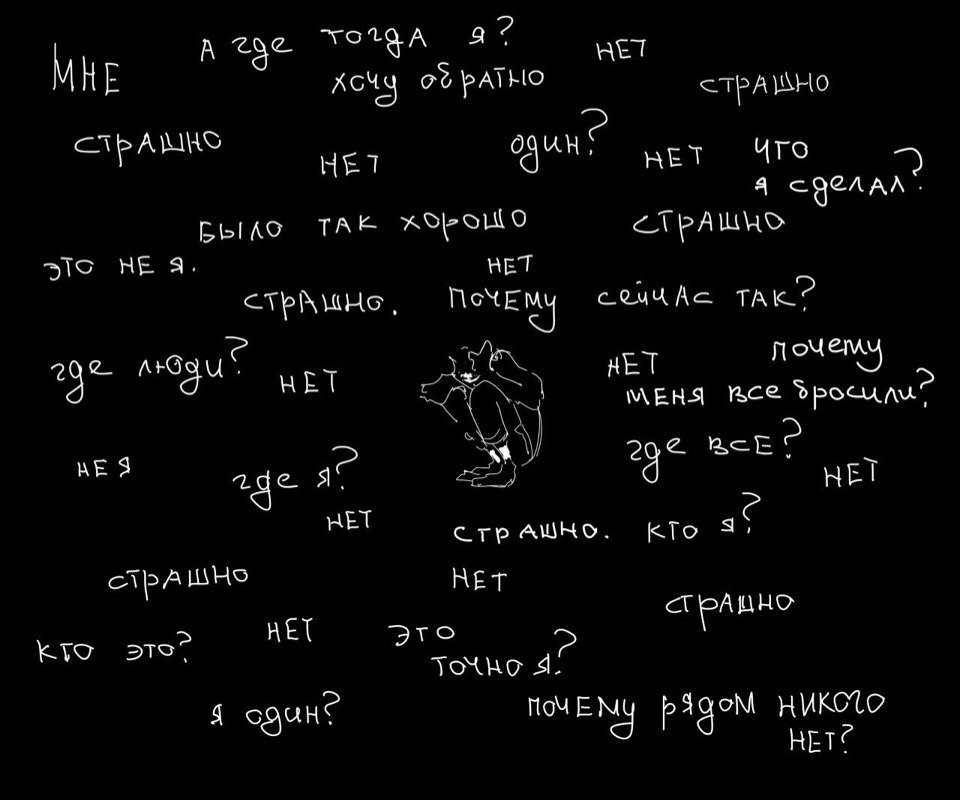 А где тогда я?
МНЕ
хочу обратно
НЕТ
СТРАШНО
СТРАШНО
НЕТ
один?
НЕТ
что
я сделал?
БЫЛО ТАК ХОРОШО
СТРАШНО
ЭТО НЕ Я.
НЕТ
СТРАШНО. ПОЧЕМУ сейчас так?
где люди?
НЕТ
НЕТ
почему
меня все бросили?
НЕ Я
где я?
где ВСЕ?
НЕТ
НЕТ
СТРАШНО. КТО Я?
СТРАШНО
НЕТ
СТРАШНО
КТО ЭТО?
НЕТ
ЭТО
ТОЧНО Я?
я один?
ПОЧЕМУ РЯДОМ НИКОГО
НЕТ?